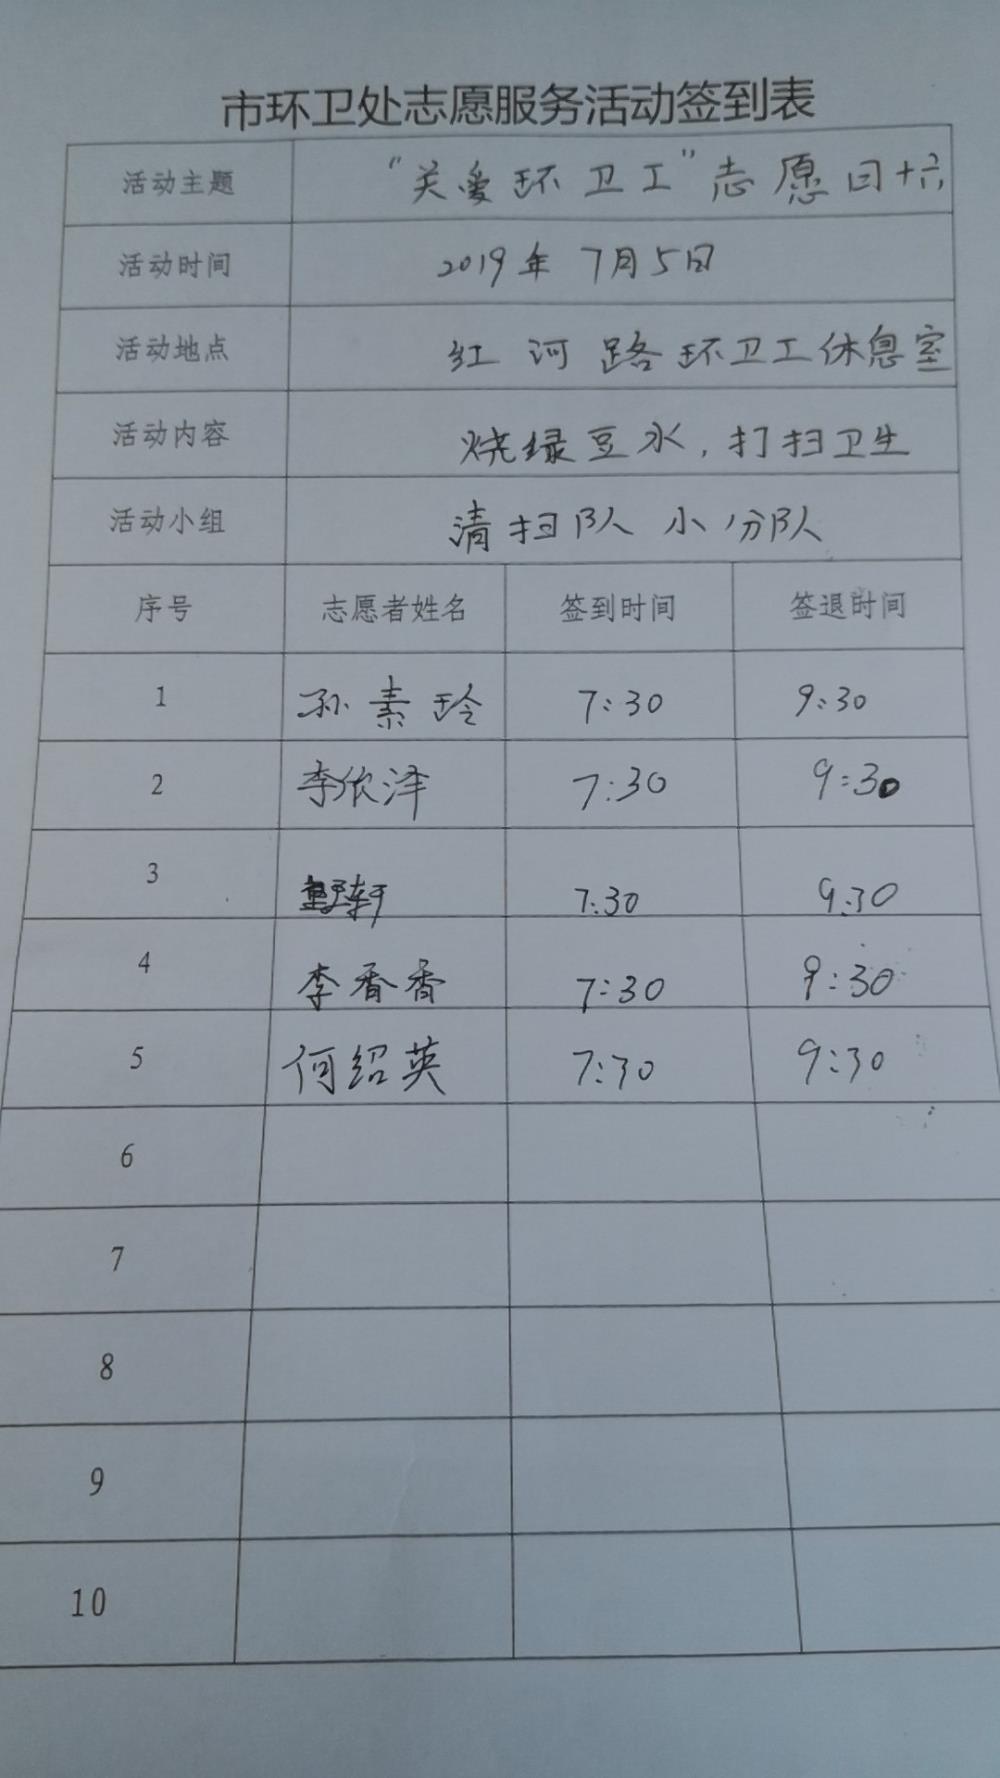 市环卫处志愿服务活动签到表
活动主题 "关爱环卫工"志愿日十六
活动时间 2019年7月5日
活动地点 红河路环卫工休息室
活动内容 烧绿豆水，打扫卫生
活动小组 清扫队小分队
序号 志愿者姓名 签到时间 签退时间
1 孙素玲 7:30 9:30
2 李依泽 7:30 9:30
3 轩 7:30 9:30
4 李香香 7:30 9:30
5 何绍英 7:30 9:30
6
7
8
9
10